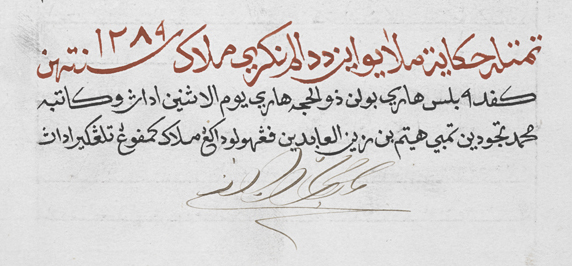 تمتله حكاية ملايو اين ددالم نكري ملاك سنتهن ١٢٨٩
كفد ٩ بلس هاري بولن ذوالحجه هاري يوم الاثنين اداڽ وكاتبه
محمد تجودين تمبي هيتم بن زين العابدين فڠهولو داكڠ ملاك كمفوڠ تلڠكير اداڽ